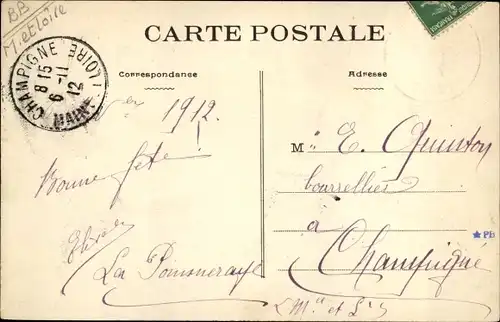 BB
M. et Loire
CARTE POSTALE
Correspondance
Adresse
CHAMPIGNE
8 15
6 - 11
12
MAINE
LOIRE
1912.
Bonne fête
La Pommeraye
M. E. Quinton
bourrellier
a
Champigné
(M. et L.
PB